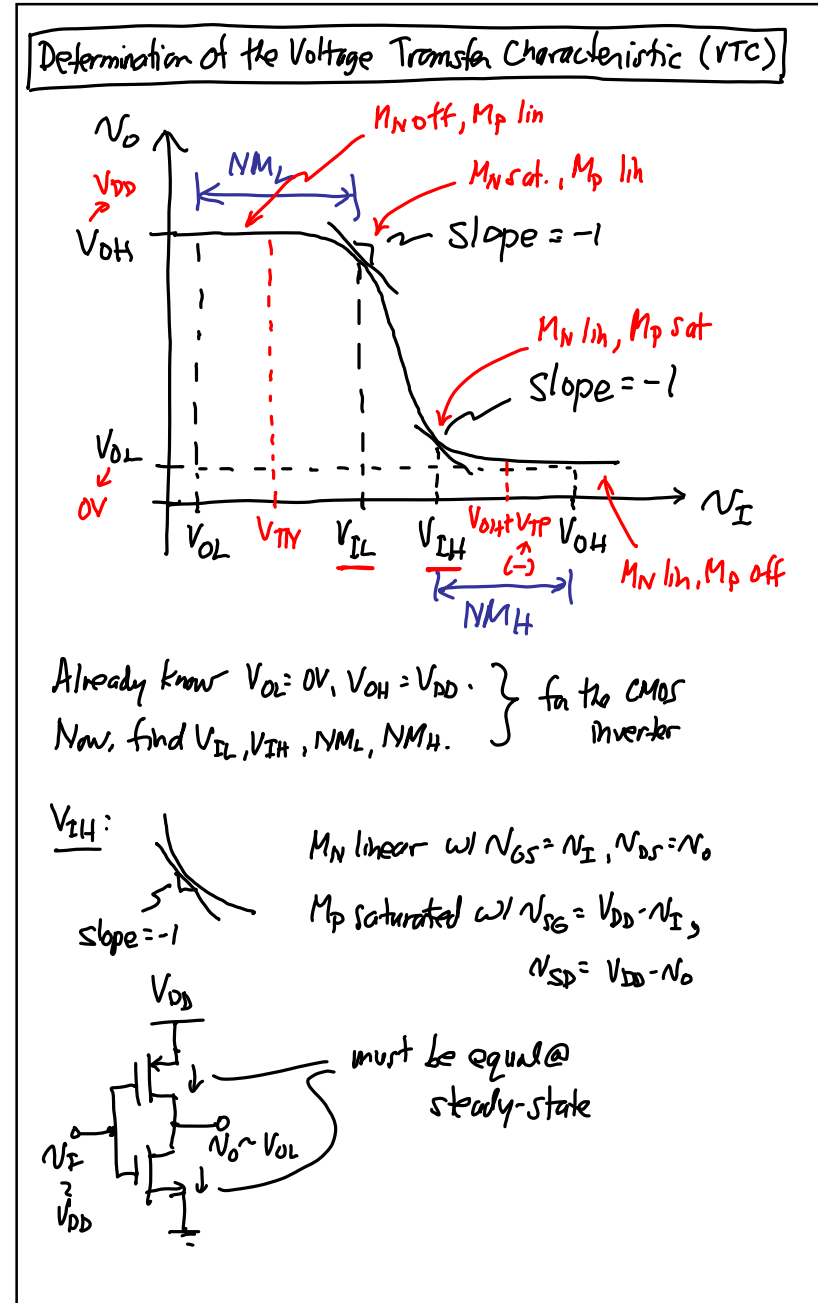 Determination of the Voltage Transfer Characteristic (VTC)
M_N off, M_P lin
v_O
NM_L
V_DD
M_N sat., M_P lin
V_OH
slope = -1
M_N lin, M_P sat
slope = -1
V_OL
0V
v_I
V_OL V_TN V_IL V_IH V_OH+V_TP V_OH
(-)
M_N lin, M_P off
NM_H
Already know V_OL = 0V, V_OH = V_DD. } for the CMOS
Now, find V_IL, V_IH, NM_L, NM_H. inverter
V_IH:
M_N linear w/ v_GS = v_I, v_DS = v_O
M_P saturated w/ v_SG = V_DD - v_I,
slope = -1
v_SD = V_DD - v_O
V_DD
must be equal @
steady-state
v_O ~ V_OL
v_I
~
V_DD